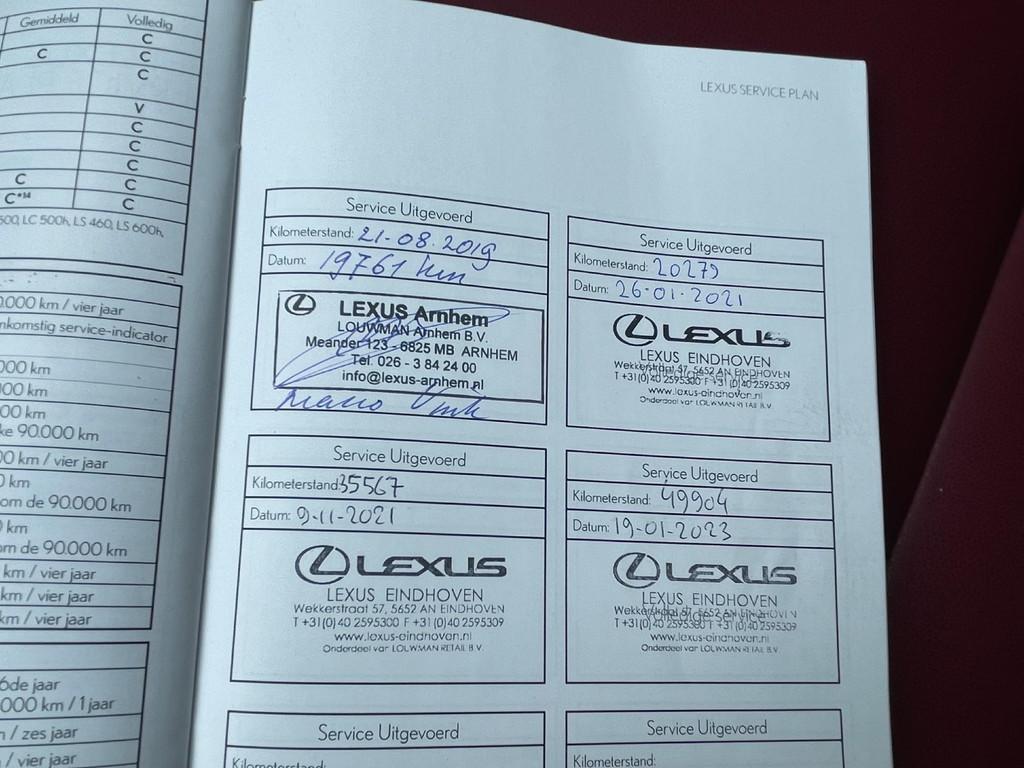 Gemiddeld Volledig
C
C C
C
V
C
C
C
C C
C*14 C
500, LC 500h, LS 460, LS 600h,
0.000 km / vier jaar
nkomstig service-indicator
000 km
000 km
00 km
ke 90.000 km
00 km / vier jaar
0 km
om de 90.000 km
0 km
om de 90.000 km
km / vier jaar
km / vier jaar
km / vier jaar
6de jaar
000 km / 1 jaar
n / zes jaar
/ vier jaar
LEXUS SERVICE PLAN
Service Uitgevoerd
Kilometerstand: 21-08-2019
Datum: 19761 km
LEXUS Arnhem
LOUWMAN Arnhem B.V.
Meander 123 - 6825 MB ARNHEM
Tel. 026 - 3 84 24 00
info@lexus-arnhem.nl
Service Uitgevoerd
Kilometerstand: 20275
Datum: 26-01-2021
LEXUS
LEXUS EINDHOVEN
Wekkerstraat 57, 5652 AN EINDHOVEN
T +31(0)40 2595300 F +31(0)40 2595309
www.lexus-eindhoven.nl
Onderdeel van LOUWMAN RETAIL B.V.
Service Uitgevoerd
Kilometerstand: 35567
Datum: 9-11-2021
LEXUS
LEXUS EINDHOVEN
Wekkerstraat 57, 5652 AN EINDHOVEN
T +31(0)40 2595300 F +31(0)40 2595309
www.lexus-eindhoven.nl
Onderdeel van LOUWMAN RETAIL B.V.
Service Uitgevoerd
Kilometerstand: 49904
Datum: 19-01-2023
LEXUS
LEXUS EINDHOVEN
Wekkerstraat 57, 5652 AN EINDHOVEN
Volledige Service
T +31(0)40 2595300 F +31(0)40 2595309
www.lexus-eindhoven.nl
Onderdeel van LOUWMAN RETAIL B.V.
Service Uitgevoerd
Kilometerstand:
Service Uitgevoerd
Kilometerstand: